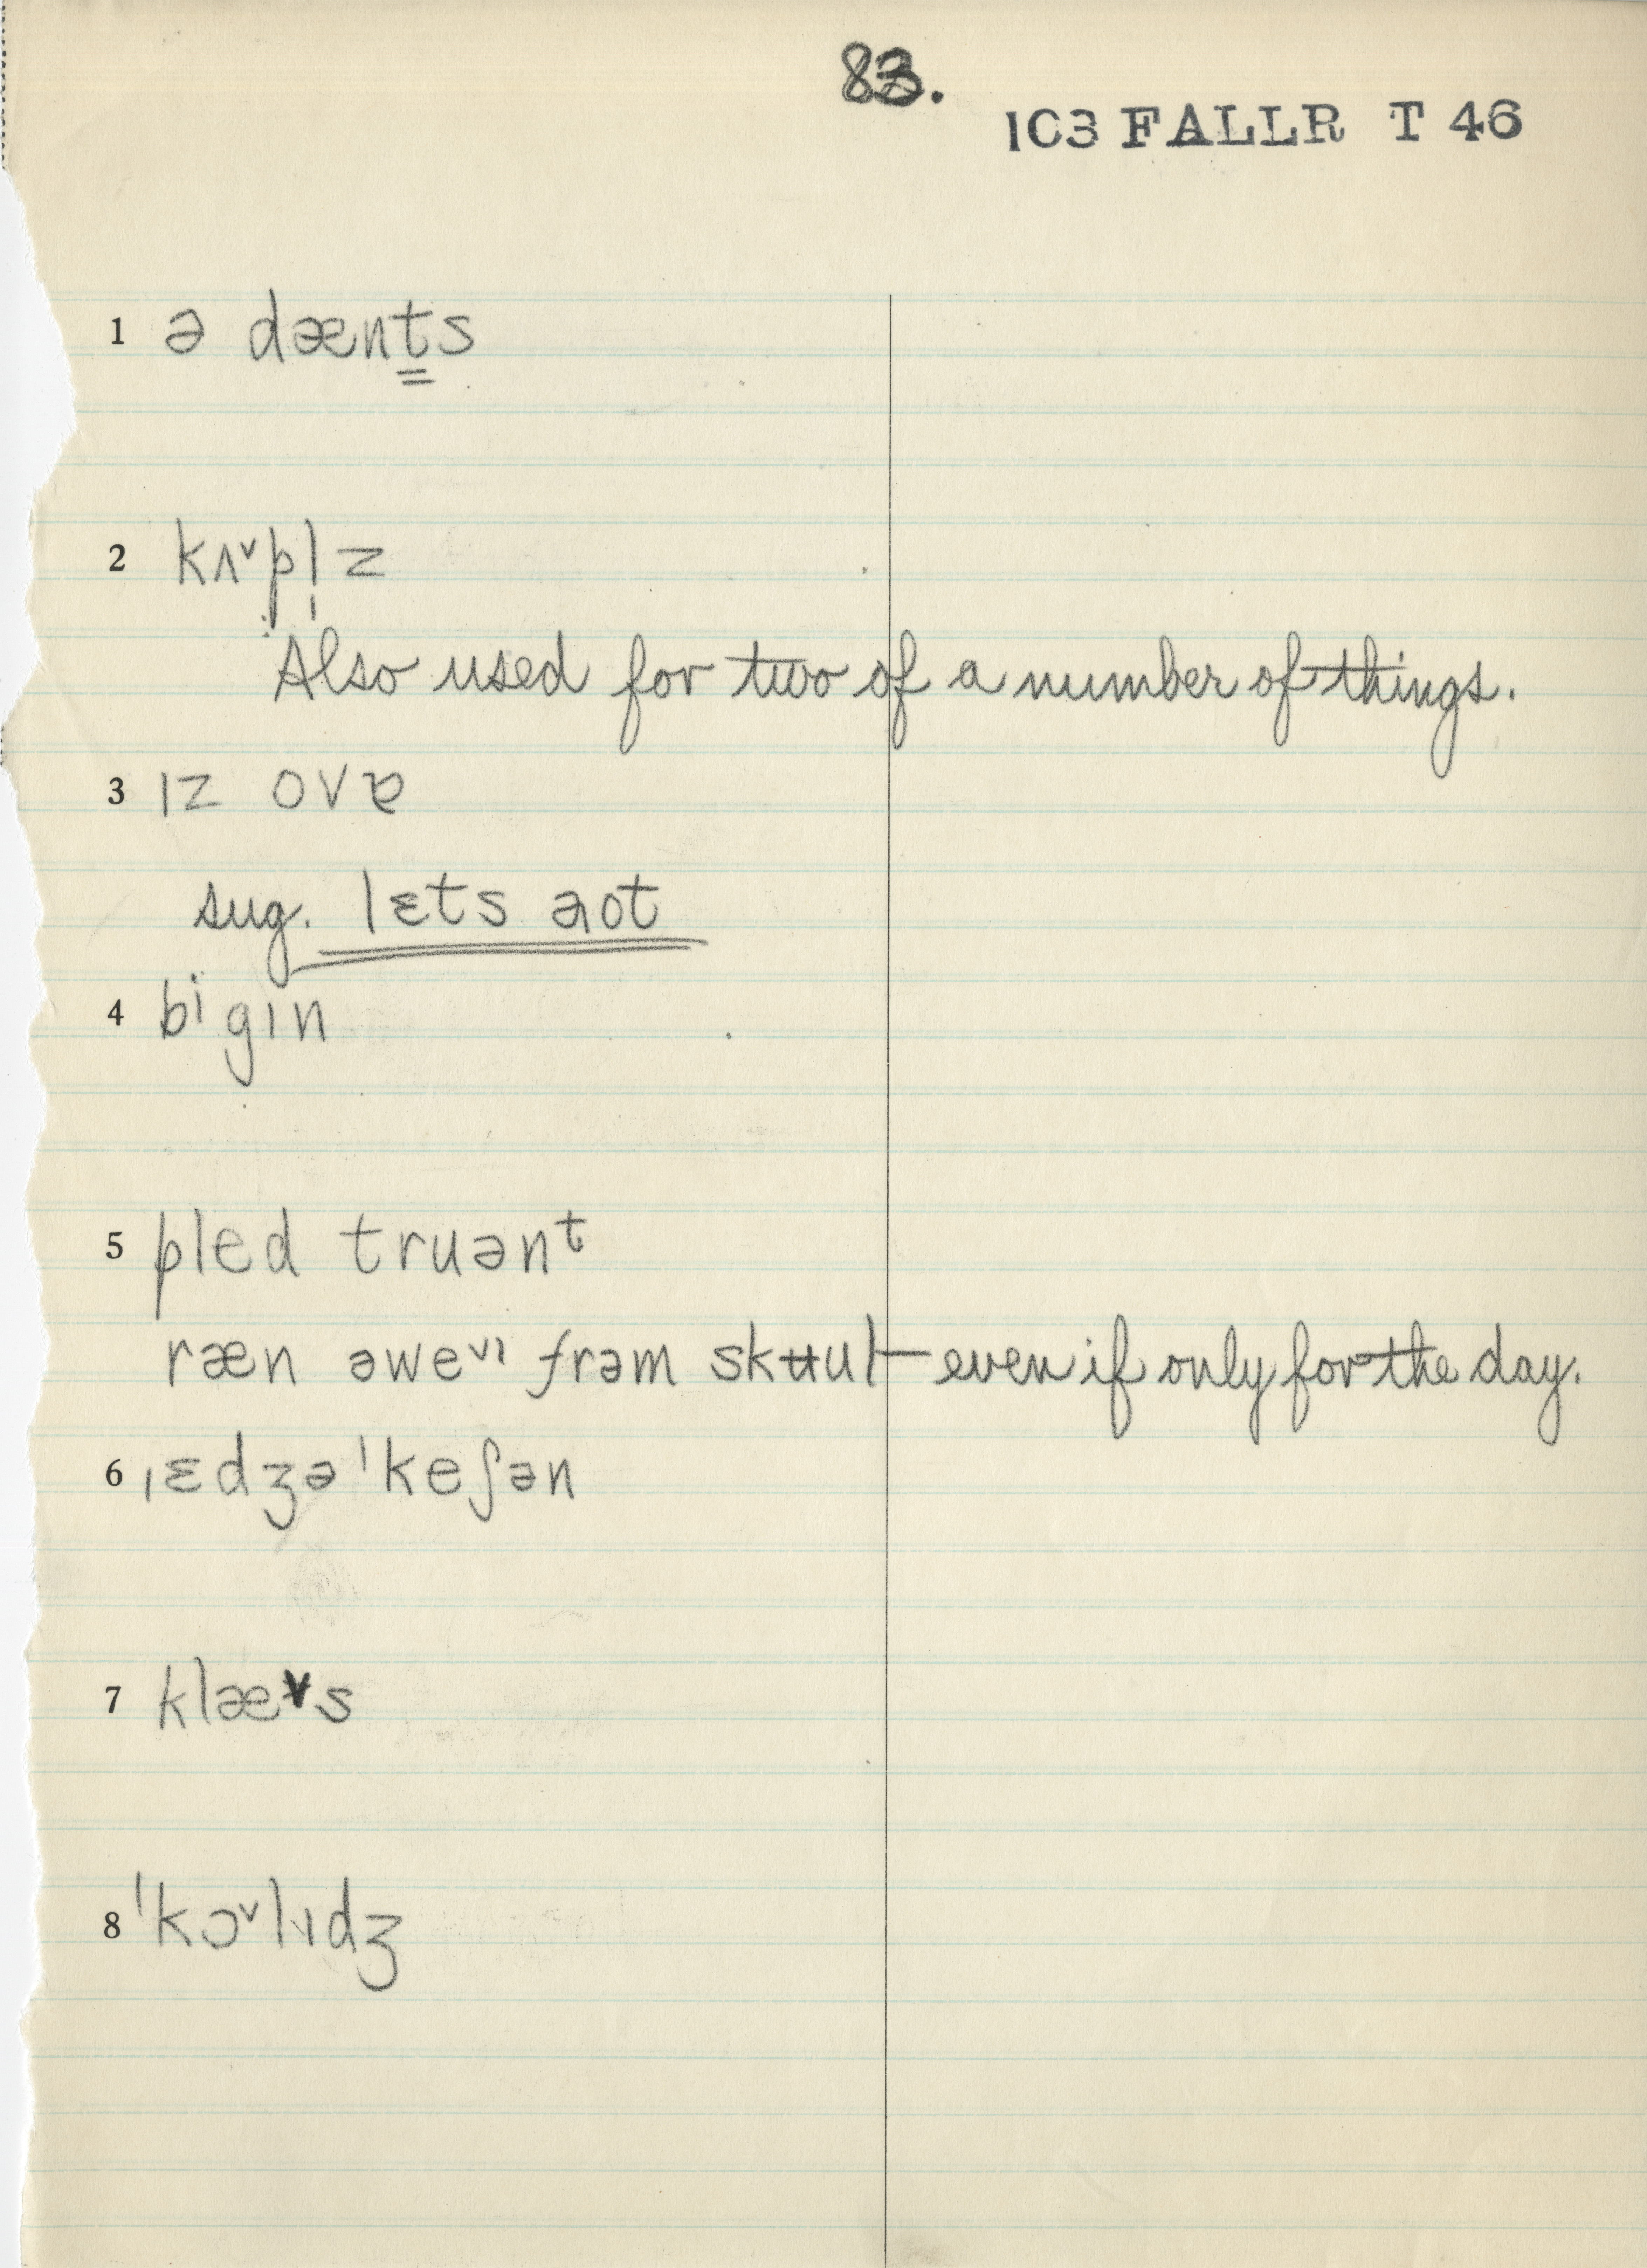 83.
103 FALLR T 46
1 ə dænts
2 kʌ˅pl̩z
Also used for two of a number of things.
3 ɪz ovɐ
sug. lɛts aot
4 bⁱgɪn
5 pled truənᵗ
ræn əwe˅ᶦ frəm skʉul — even if only for the day.
6 ˌɛdʒəˈkeʃən
7 klæ˅s
8 ˈkɔ˅lɪdʒ